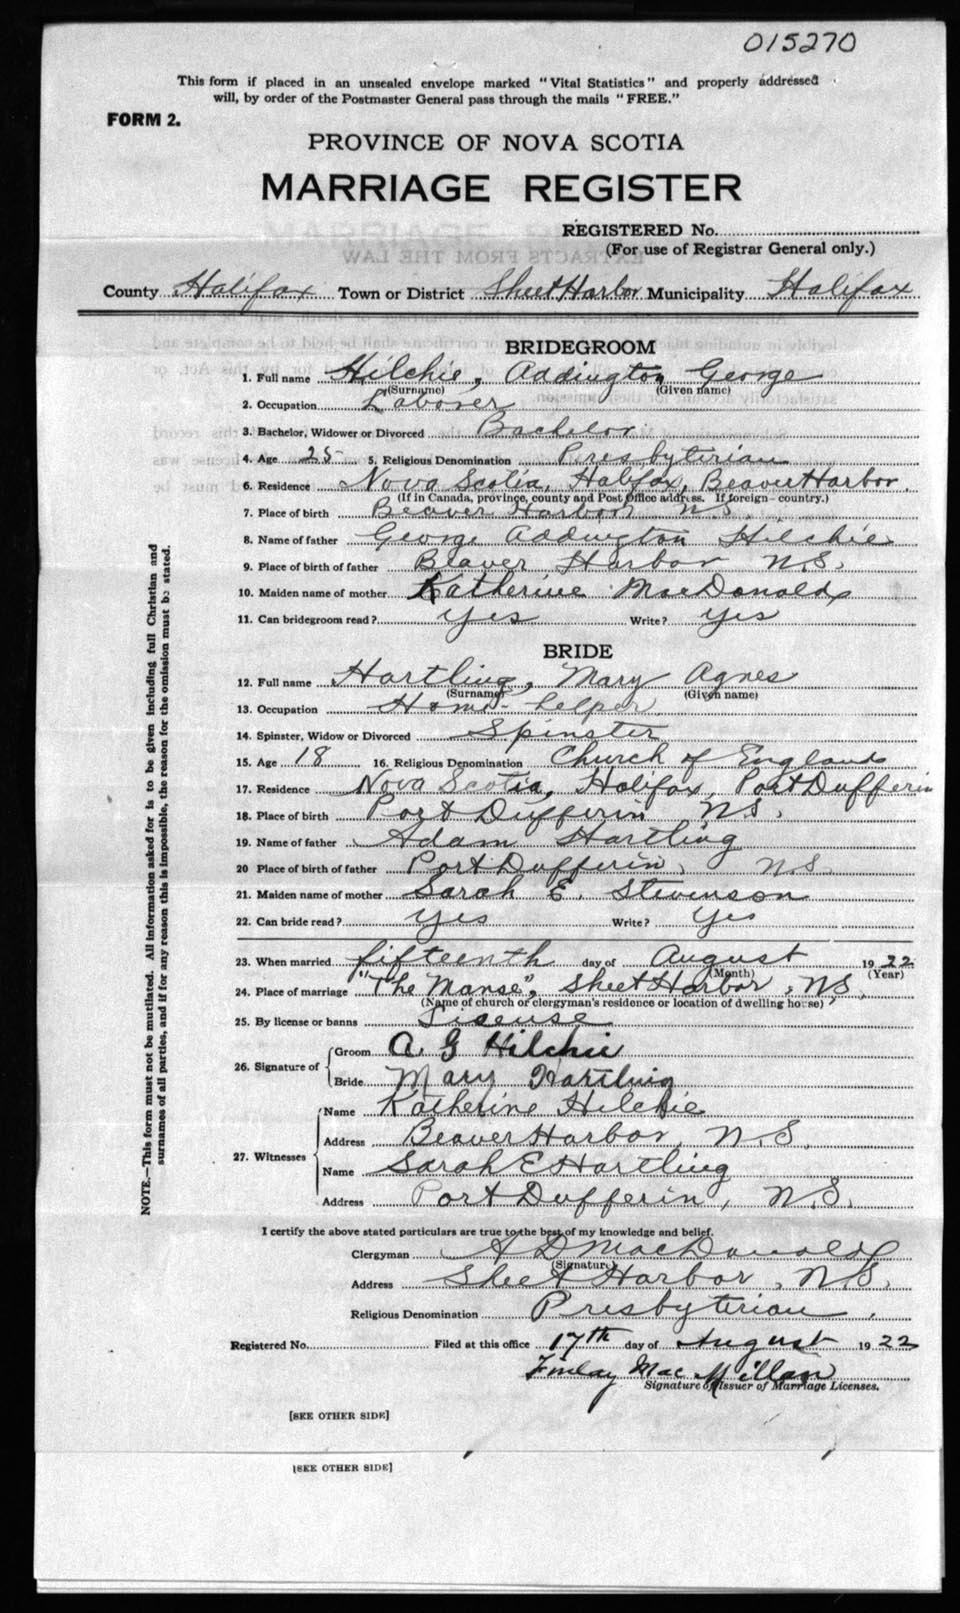 015270
This form if placed in an unsealed envelope marked "Vital Statistics" and properly addressed
will, by order of the Postmaster General pass through the mails "FREE."
FORM 2.
PROVINCE OF NOVA SCOTIA
MARRIAGE REGISTER
REGISTERED No.
(For use of Registrar General only.)
County Halifax Town or District Sheet Harbor Municipality Halifax
BRIDEGROOM
1. Full name Hilchie, Addington George
(Surname) (Given name)
2. Occupation Laborer
3. Bachelor, Widower or Divorced Bachelor
4. Age 25 5. Religious Denomination Presbyterian
6. Residence Nova Scotia, Halifax, Beaver Harbor.
(If in Canada, province, county and Post Office address. If foreign - country.)
7. Place of birth Beaver Harbor N.S.
8. Name of father George Addington Hilchie
9. Place of birth of father Beaver Harbor N.S.
10. Maiden name of mother Katherine MacDonald
11. Can bridegroom read? yes Write? yes
BRIDE
12. Full name Hartling, Mary Agnes
(Surname) (Given name)
13. Occupation Home-helper
14. Spinster, Widow or Divorced Spinster
15. Age 18 16. Religious Denomination Church of England
17. Residence Nova Scotia, Halifax, Port Dufferin
18. Place of birth Port Dufferin N.S.
19. Name of father Adam Hartling
20 Place of birth of father Port Dufferin, N.S.
21. Maiden name of mother Sarah E. Stevenson
22. Can bride read? yes Write? yes
23. When married fifteenth day of August 1922
(Month) (Year)
24. Place of marriage "The Manse", Sheet Harbor, N.S.
(Name of church or clergyman's residence or location of dwelling house)
25. By license or banns Lisense
26. Signature of Groom A G Hilchie
Bride Mary Hartling
27. Witnesses Name Katherine Hilchie
Address Beaver Harbor, N.S.
Name Sarah E Hartling
Address Port Dufferin, N.S.
I certify the above stated particulars are true to the best of my knowledge and belief.
Clergyman A D MacDonald
(Signature)
Address Sheet Harbor, N.S.
Religious Denomination Presbyterian.
Registered No. Filed at this office 17th day of August 1922
Finlay MacMillan
Signature of Issuer of Marriage Licenses.
[SEE OTHER SIDE]
[SEE OTHER SIDE]
NOTE.—This form must not be mutilated. All information asked for is to be given including full Christian and
surnames of all parties, and if for any reason this is impossible, the reason for the omission must be stated.